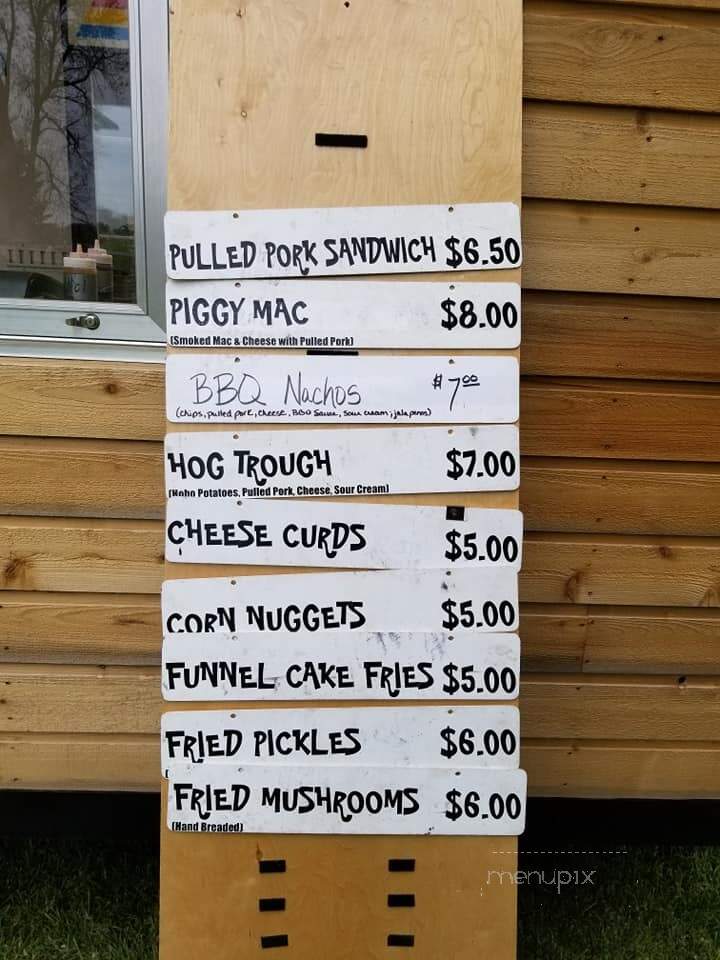 PULLED PORK SANDWICH $6.50
PIGGY MAC $8.00
(Smoked Mac & Cheese with Pulled Pork)
BBQ Nachos $7.00
(chips, pulled pork, cheese, BBQ Sauce, sour cream, jalapenos)
HOG TROUGH $7.00
(Hobo Potatoes, Pulled Pork, Cheese, Sour Cream)
CHEESE CURDS $5.00
CORN NUGGETS $5.00
FUNNEL CAKE FRIES $5.00
FRIED PICKLES $6.00
FRIED MUSHROOMS $6.00
(Hand Breaded)
menupix